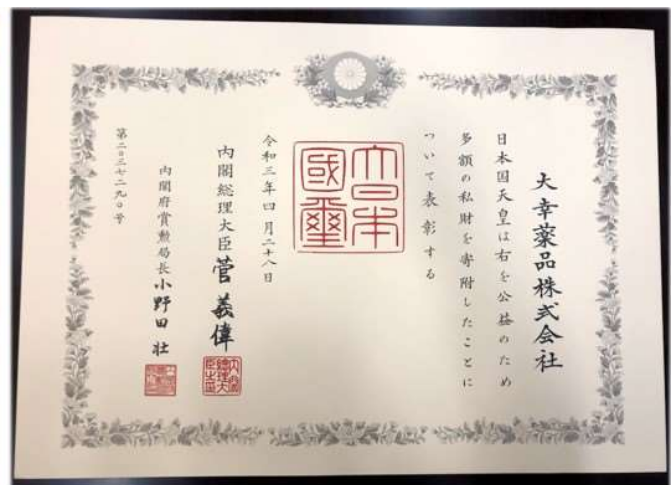 大幸薬品株式会社
日本国天皇は右を公益のため
多額の私財を寄附したことに
ついて表彰する
大日本國璽
令和三年四月二十八日
内閣総理大臣 菅義偉
内閣府賞勲局長 小野田壮
第二〇三七二九〇号